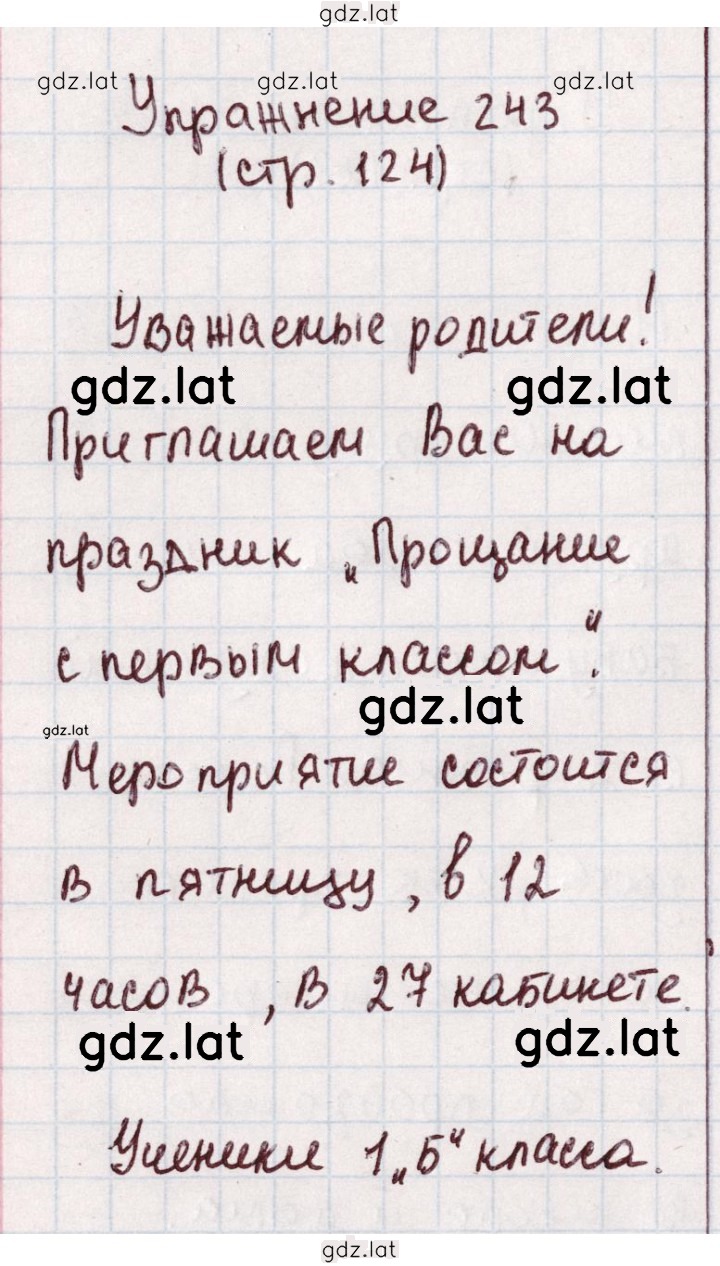 gdz.lat
gdz.lat gdz.lat gdz.lat
Упражнение 243
(стр. 124)
Уважаемые родители!
gdz.lat gdz.lat
Приглашаем Вас на
праздник „Прощание
с первым классом“.
gdz.lat
gdz.lat
Мероприятие состоится
в пятницу, в 12
часов, в 27 кабинете.
gdz.lat gdz.lat
Ученики 1 „Б“ класса.
gdz.lat